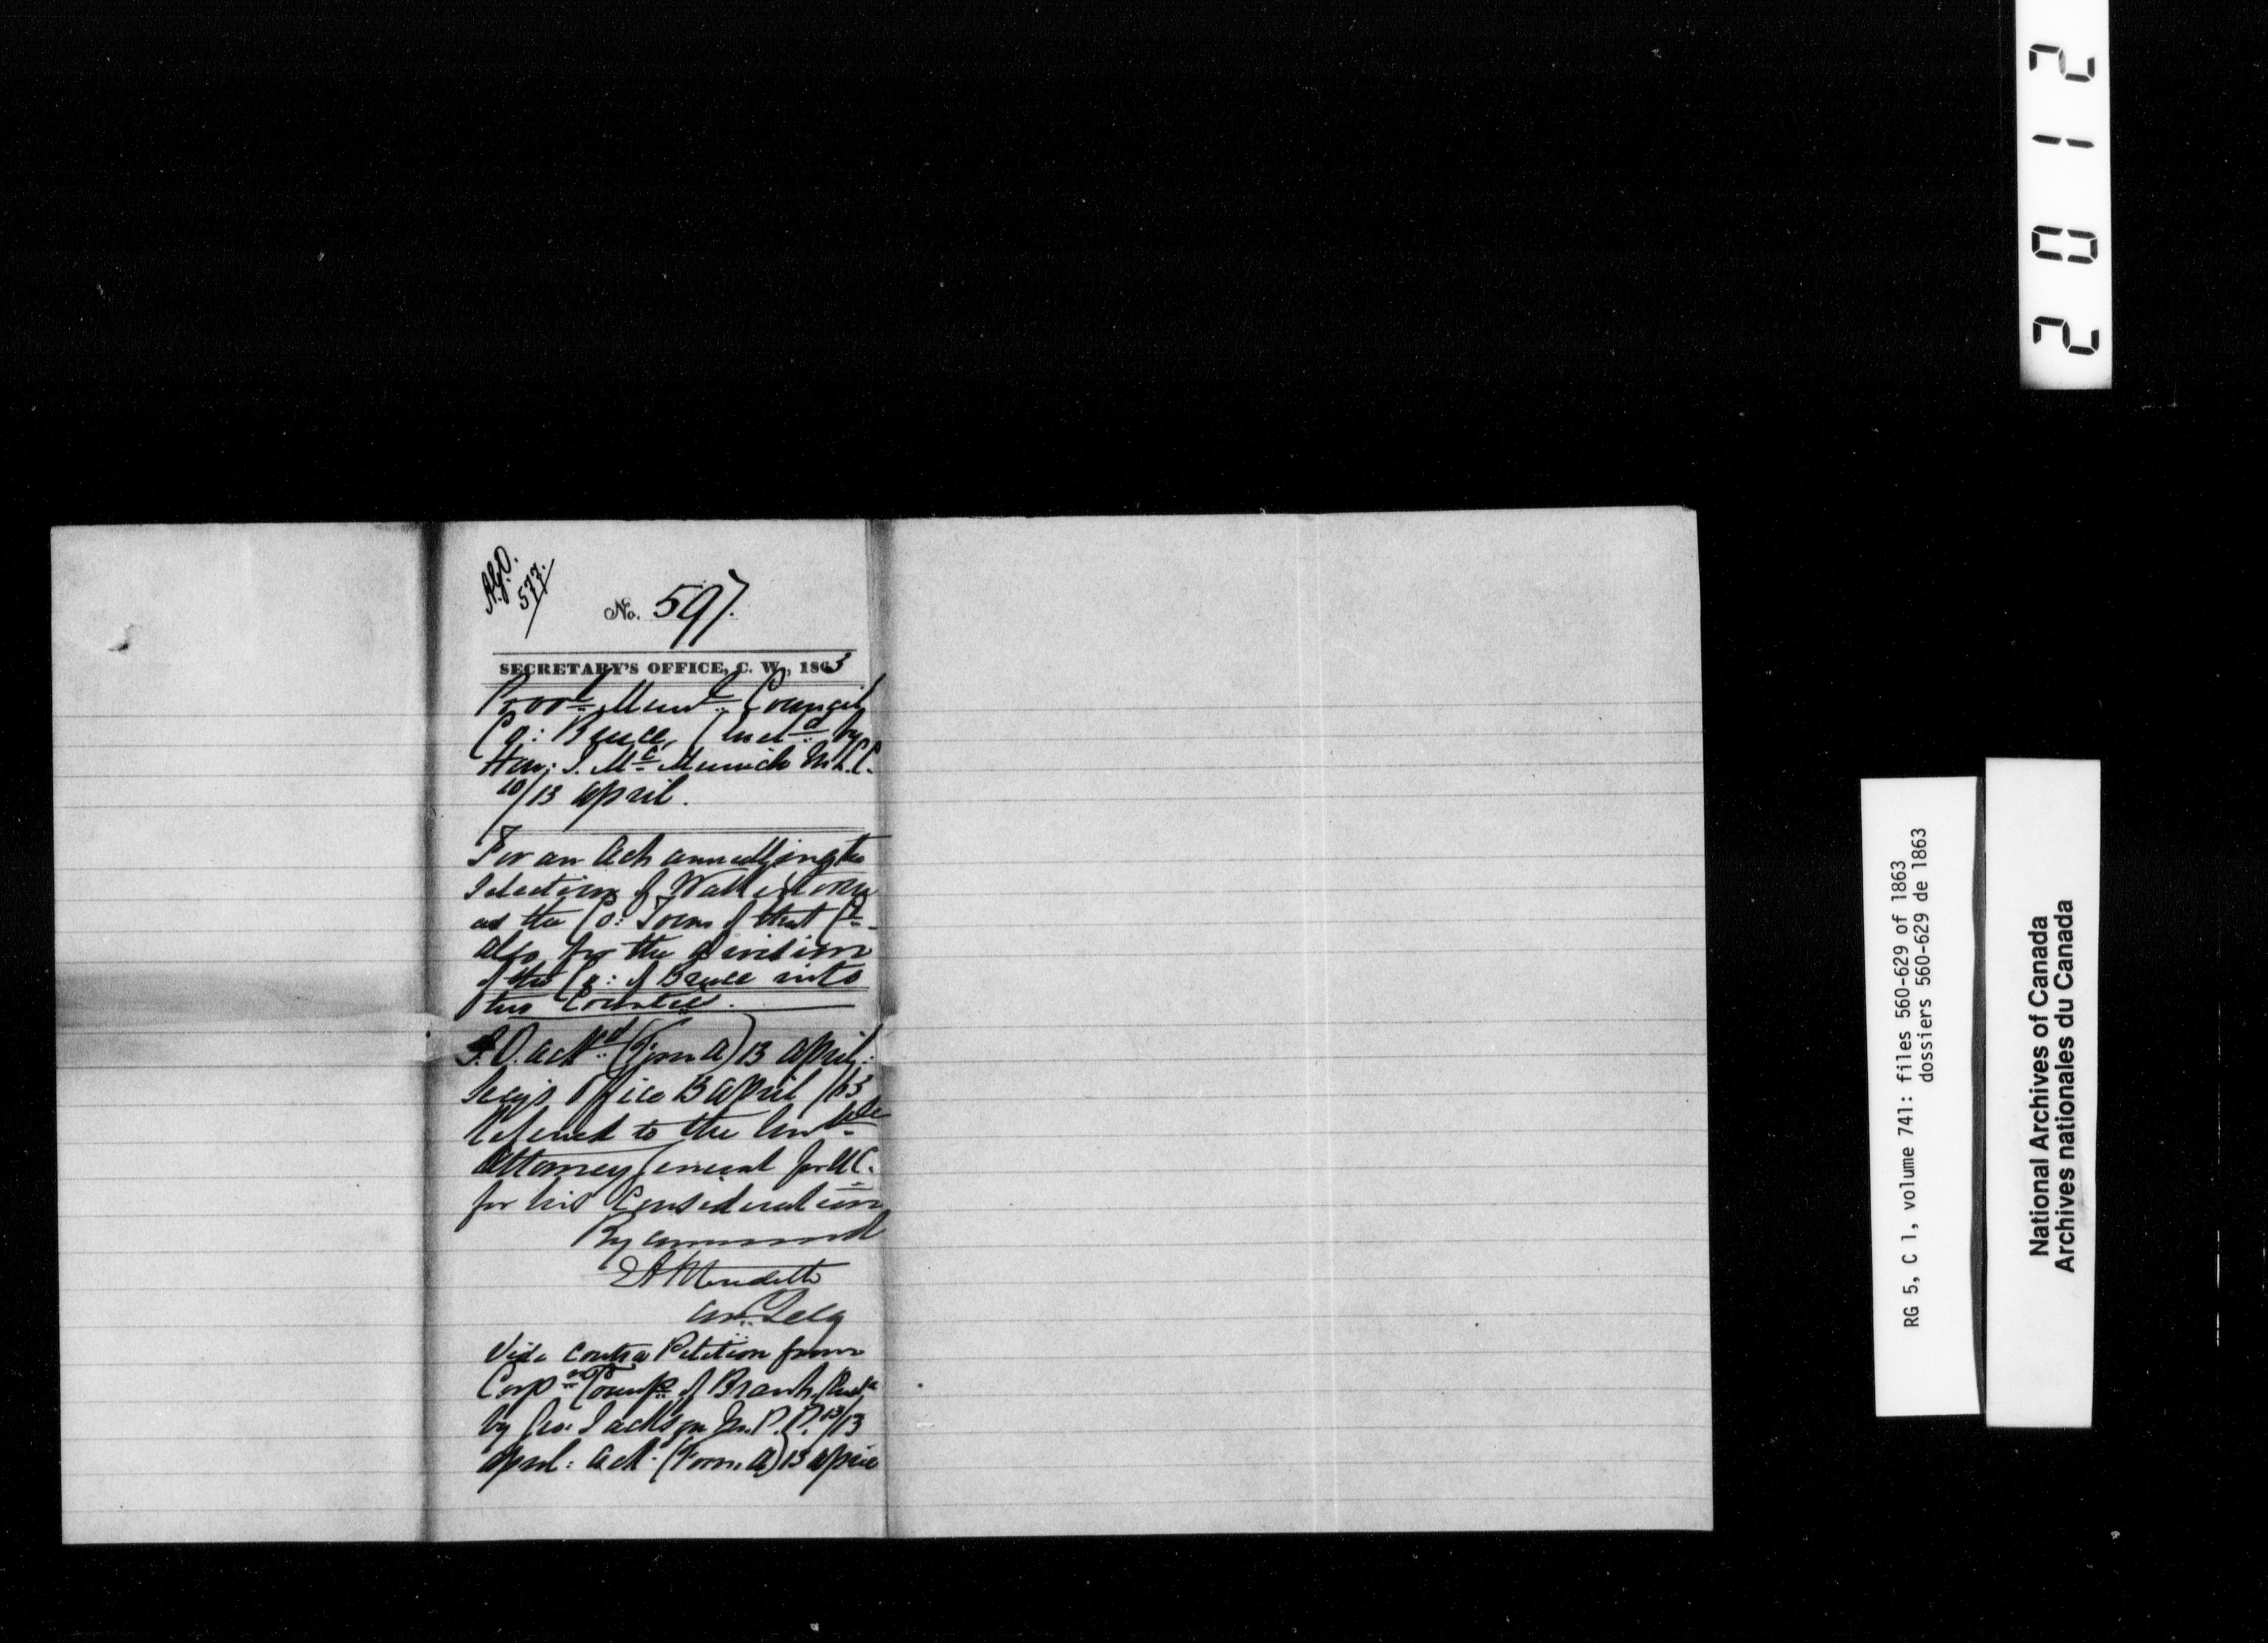 A.G.O.
577.
No. 597.
SECRETARY'S OFFICE, C. W., 1863
Provl. Munl. Council
Co: Bruce, (encld. by
Hon: D. McMurrich M.L.C.
10/13 April.
For an Act annulling the
selection of Walkerton
as the Co: Town of that Co.
also for the division
of the Co: of Bruce into
two Counties.
P.O. ackd. (Form A) 13 April.
Secy's Office 13 April /63
Referred to the Honble.
Attorney General for U.C.
for his Consideration
By command
E A Meredith
Asst. Secy
Vide Contra Petition from
Corpn. of Townsp. of Brant,
by Geo. Jackson M.P.P. 13/13
April: Ackd. (Form A) 13 April
2012
RG 5, C 1, volume 741: files 560-629 of 1863
dossiers 560-629 de 1863
National Archives of Canada
Archives nationales du Canada